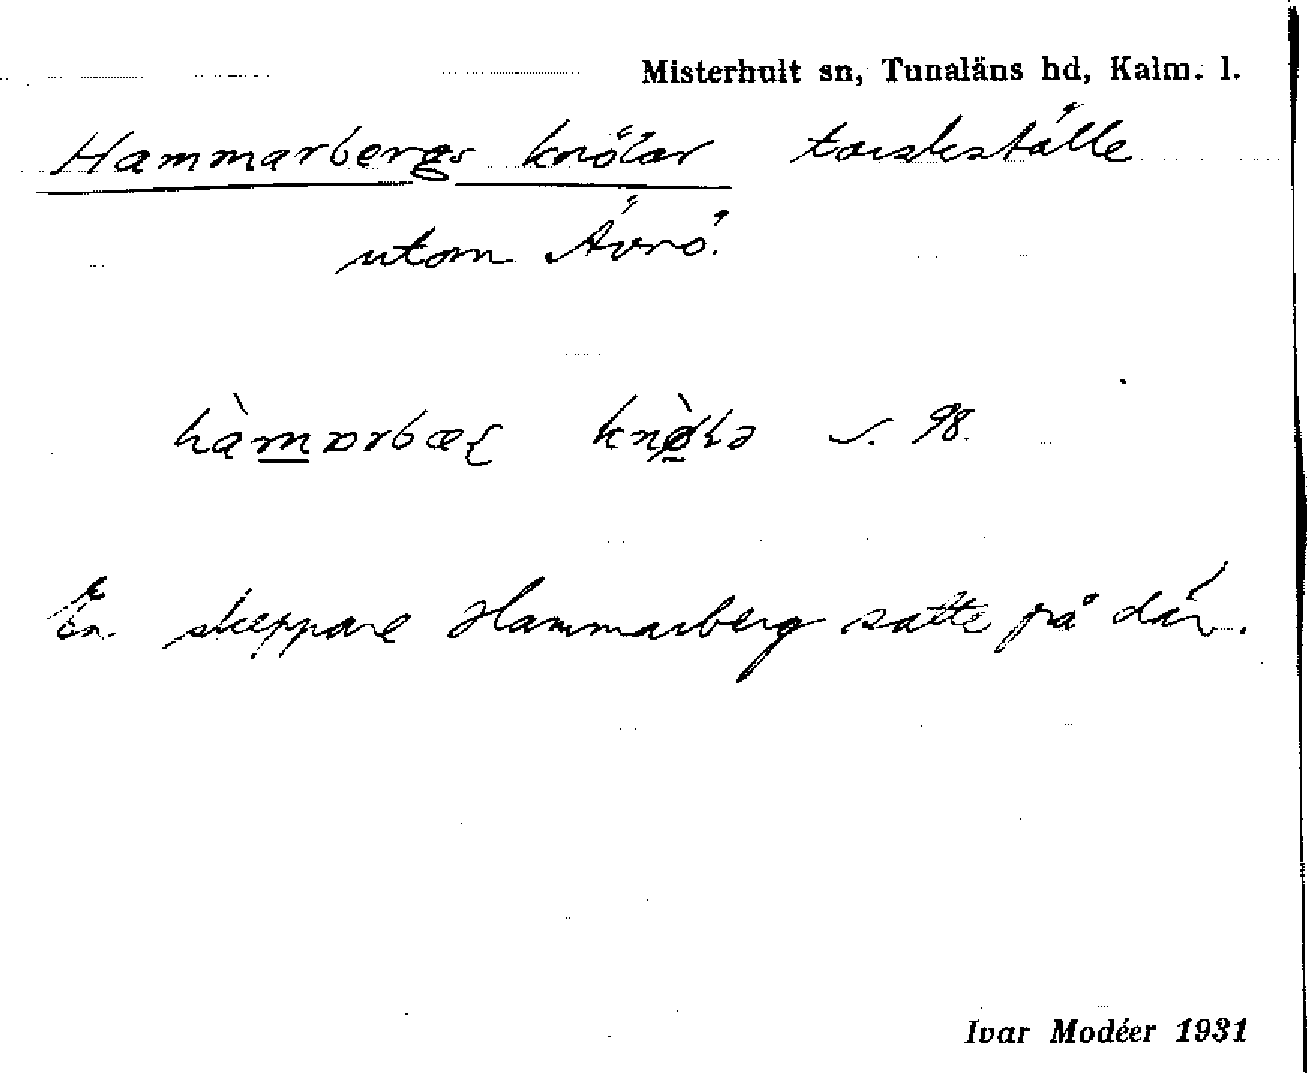 Misterhult sn, Tunaläns hd, Kalm. l.
Hammarbergs knölar torskställe
utom Ävrö.
hàmarbæʃ s. 98.
En skeppare Hammarberg satte på där.
Ivar Modéer 1931